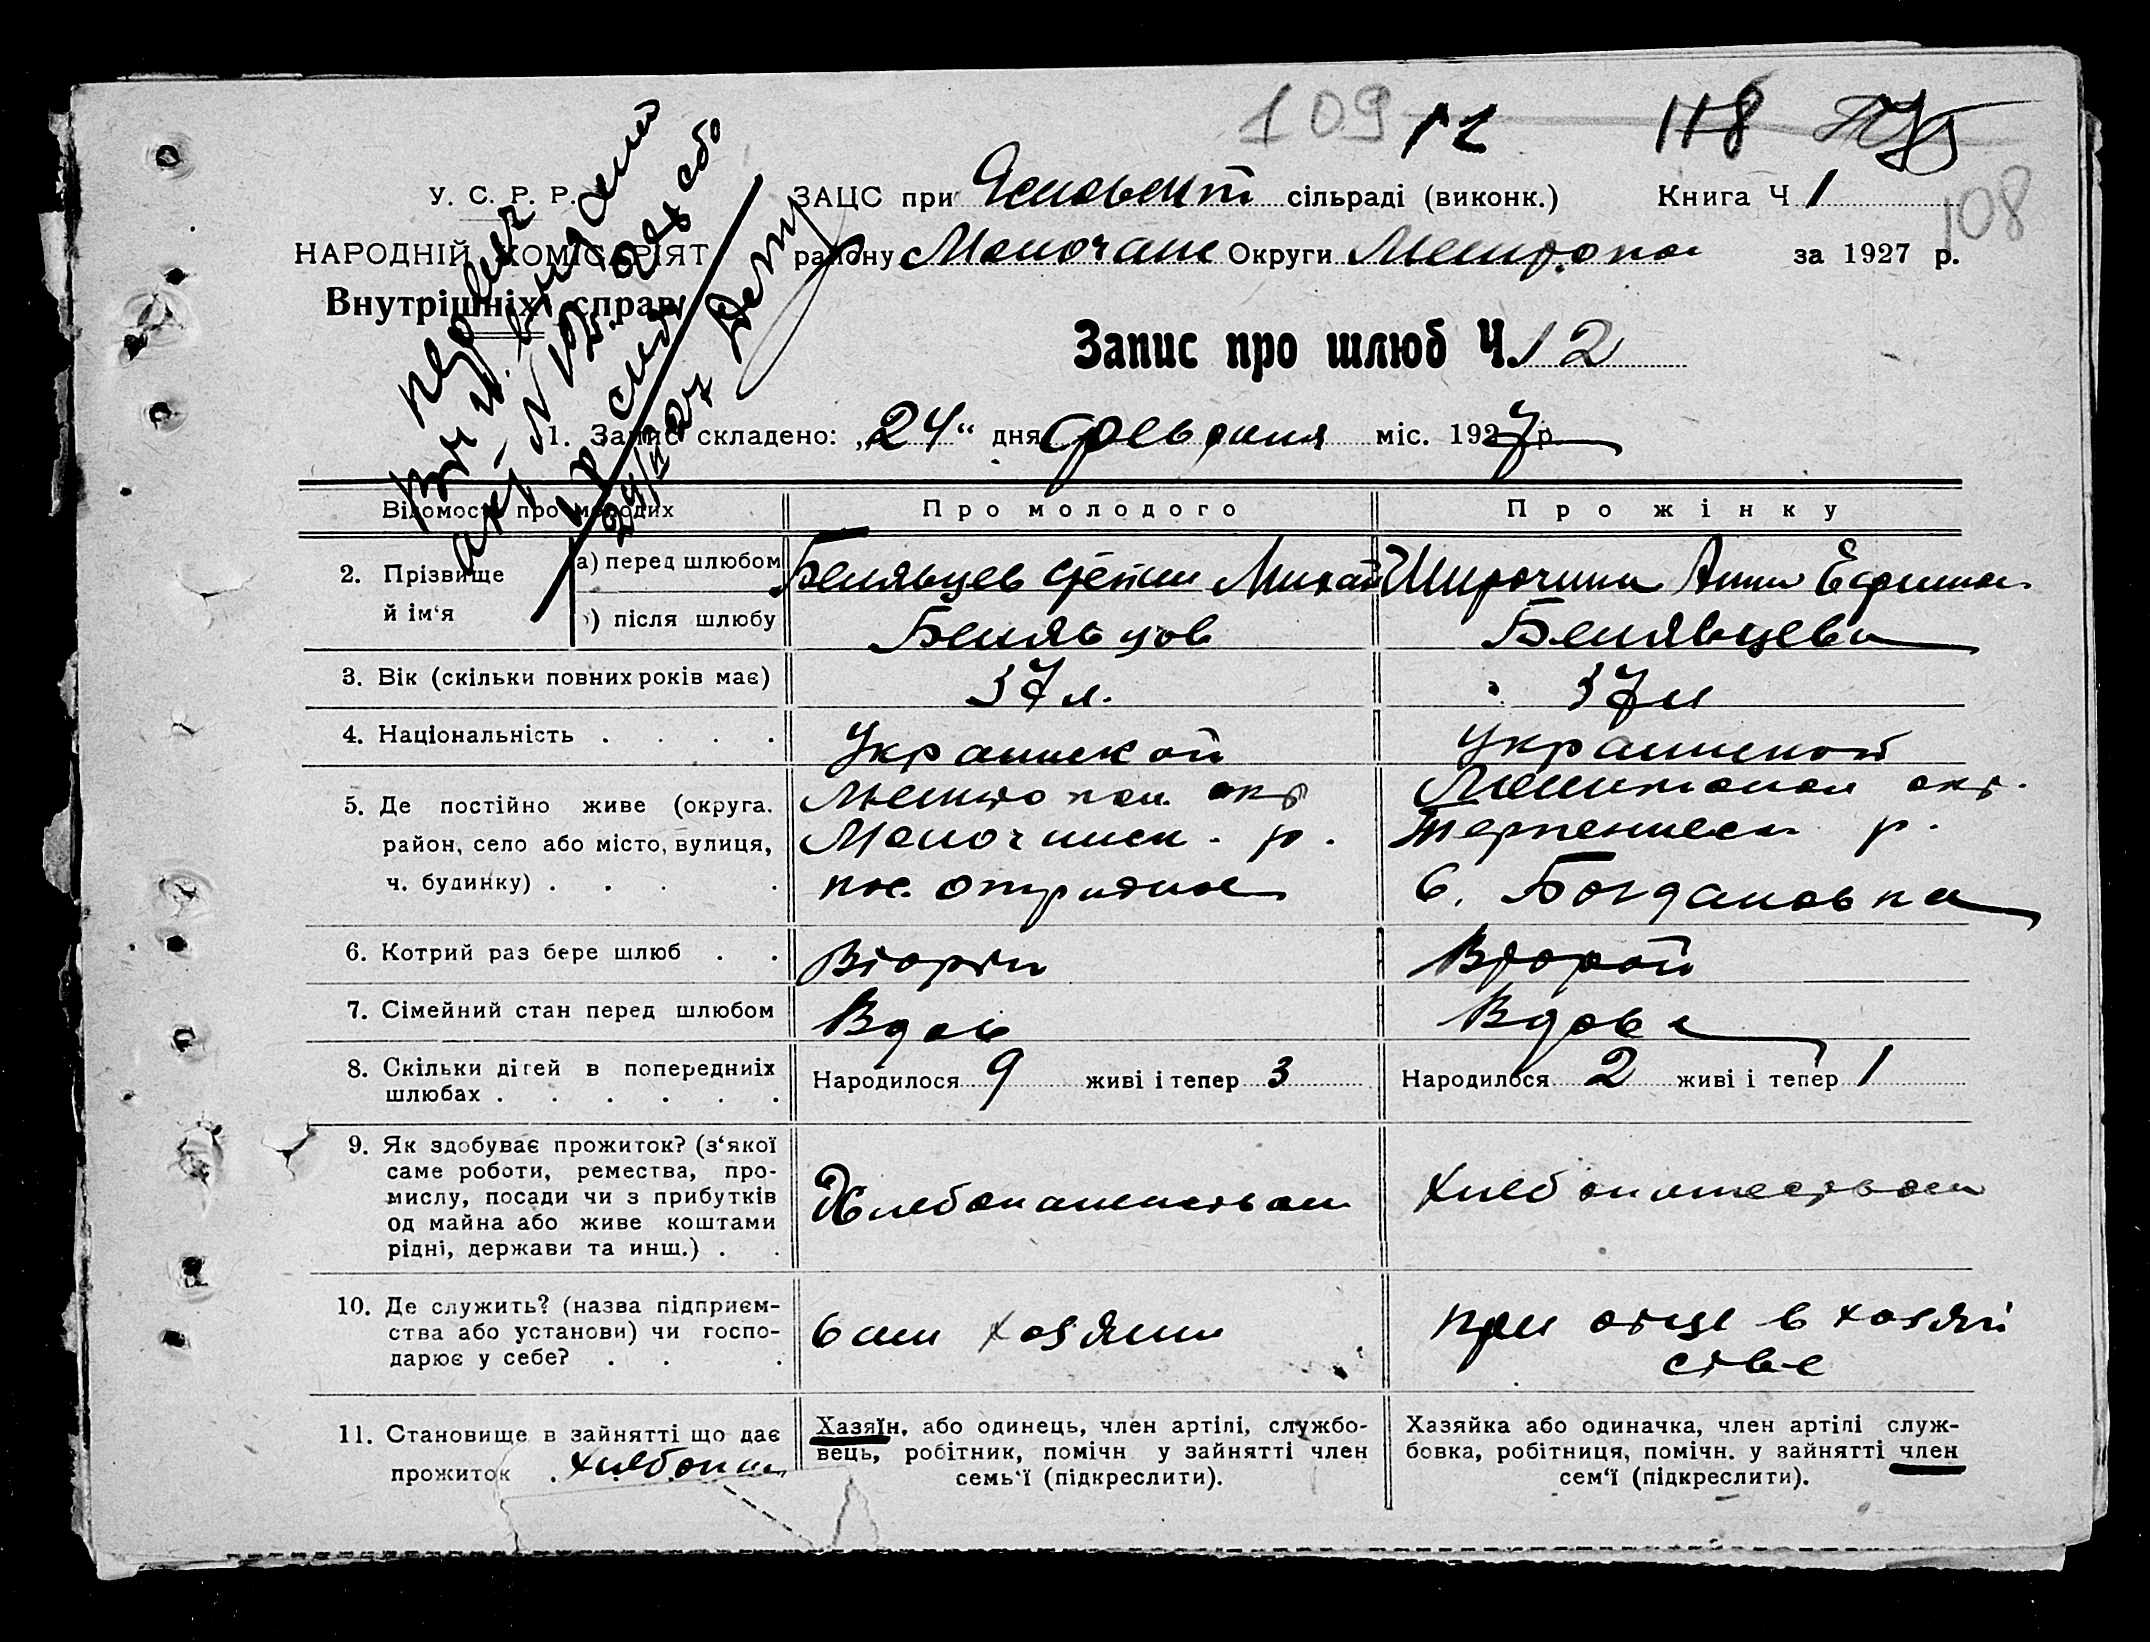 109 12 118
108
У. С. Р. Р. ЗАЦС при сільраді (виконк.) Книга Ч 1
НАРОДНІЙ КОМІСАРІЯТ району Молочанс Округи Мелитопол за 1927 р.
Внутрішніх справ
Запис про шлюб Ч. 12
1. Запис складено: „24“ дня февраля міс. 1927 р.
Відомости про молодих Про молодого Про жінку
2. Прізвище й ім‘я
а) перед шлюбом Белявцев Степан Михай Широчина Анна Ефимов.
б) після шлюбу Белявцов Белявцева
3. Вік (скільки повних років має) 37 л. 37 л
4. Національність . . . . Украинской Украинской
5. Де постійно живе (округа, Мелитопол. окр Мелитопол окр.
район, село або місто, вулиця, Молочанск. р. Терпениевск р.
ч. будинку) . . . . пос. Отрадное с. Богдановка
6. Котрий раз бере шлюб . . Вторий Второй
7. Сімейний стан перед шлюбом Вдов Вдова
8. Скільки дітей в попередниіх
шлюбах . . . . . . Народилося 9 живі і тепер 3 Народилося 2 живі і тепер 1
9. Як здобуває прожиток? (з‘якої
саме роботи, ремества, про-
мислу, посади чи з прибутків Хлебопашеством хлебопашеством
од майна або живе коштами
рідні, держави та инш.) . .
10. Де служить? (назва підприєм-
ства або установи) чи госпо- сам хозяин при отце в хозяй
дарює у себе? . . . стве
11. Становище в зайнятті що дає
прожиток . хлебопаш
Хазяїн, або одинець, член артілі, службо-
вець, робітник, помічн у зайнятті член
семь‘ї (підкреслити).
Хазяйка або одиначка, член артілі служ-
бовка, робітниця, помічн. у зайнятті член
сем‘ї (підкреслити).